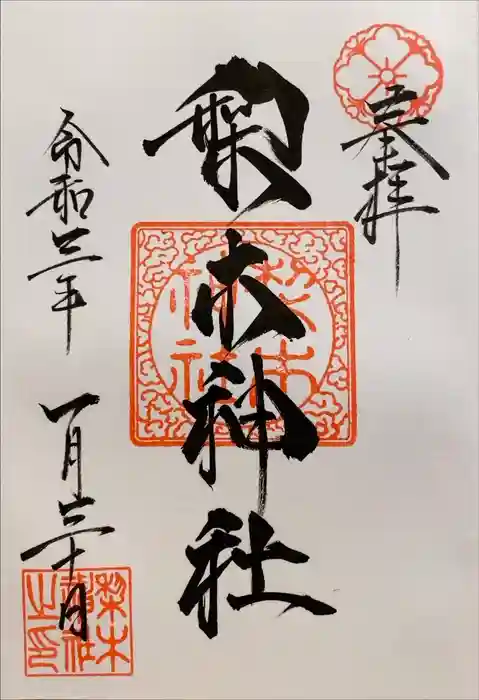 奉拝
梨木神社
梨木神社
令和三年 一月三十日
梨木神社之印